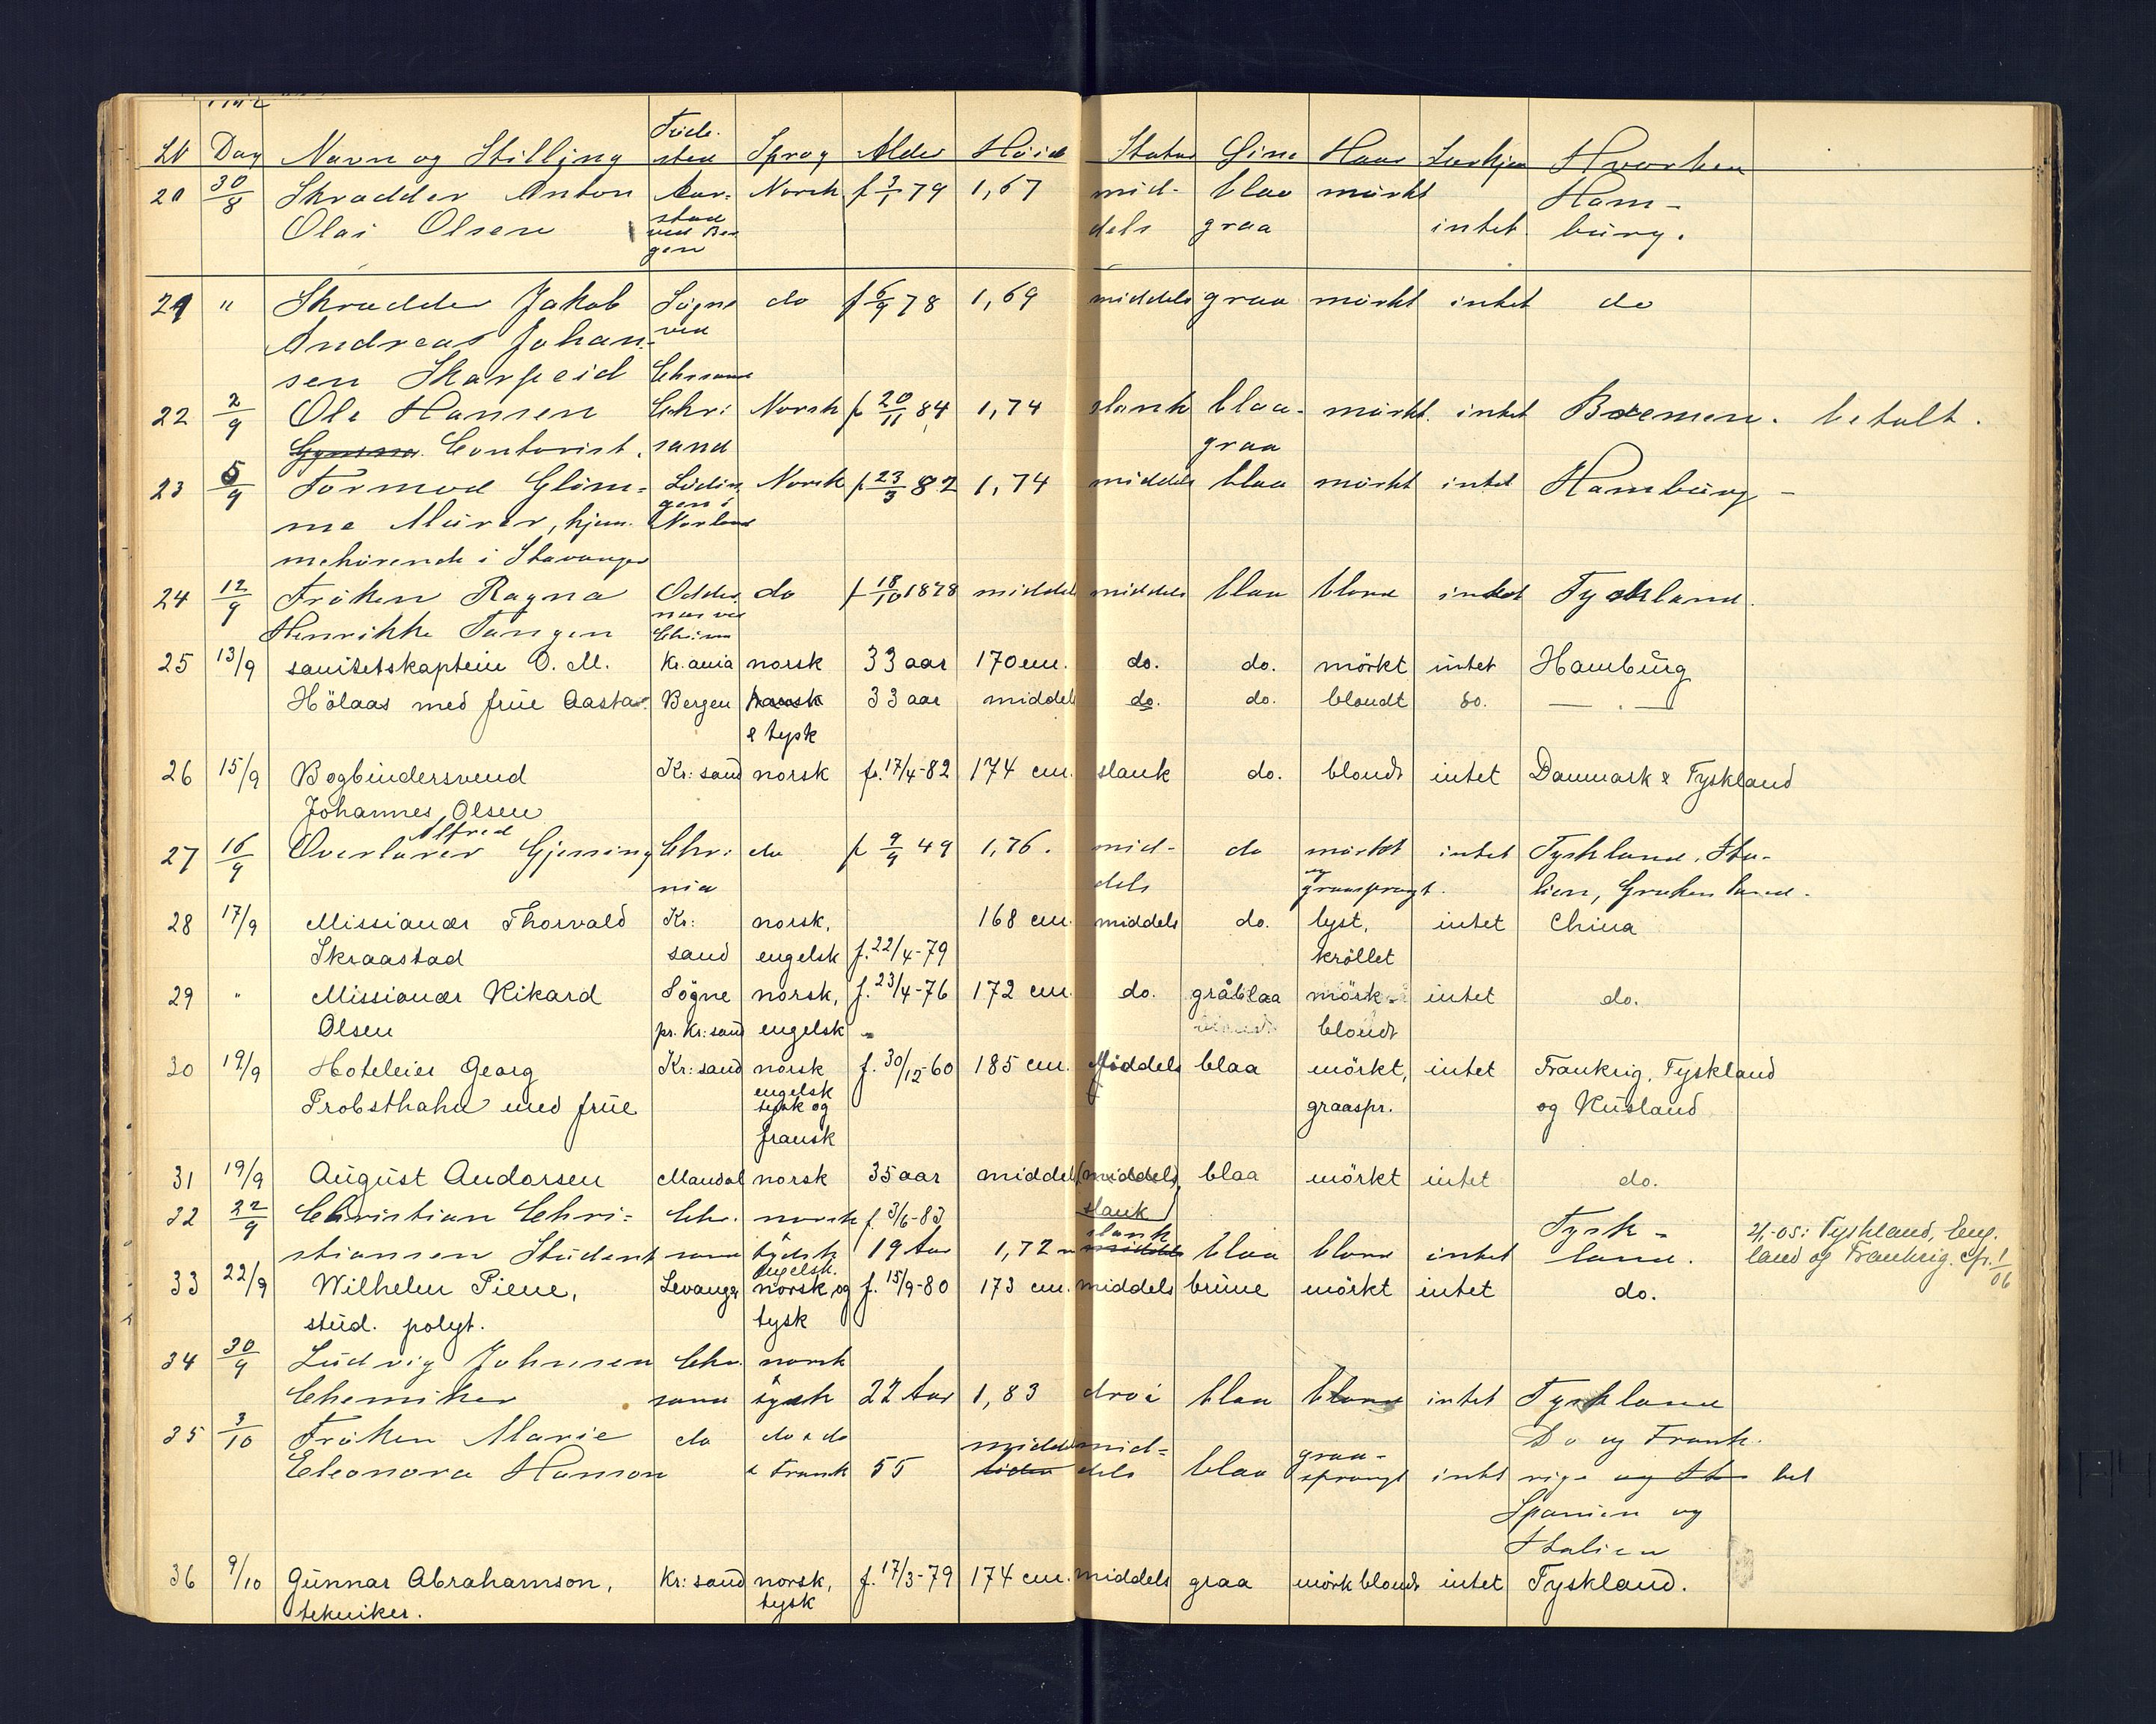 LN Dag Navn og Stilling Föde- Sprog Alder Höide Statur Öine Haar Særkjen Hvorhen
sted
20 30/8 Skrædder Anton Aar- Norsk f 3/1 79 1,67 mid- blaa mörkt Ham-
Olai Olsen stad dels graa intet burg.
ved Ber
gen
21 " Skrædder Jakob Sögne do f 6/9 78 1,69 middels graa mörkt intet do
Andreas Johan- ved
sen Skarpeid Chrsand
22 2/9 Ole Hansen Chri: Norsk f 20/11 84 1,74 slank blaa- mörkt intet Bremen. betalt.
Contorist. sand graa
23 5/9 Tormod Glöm- Lödin Norsk f 23/3 82 1,74 middels blaa mörkt intet Hamburg -
me Murer, hjem- gen i
mehörende i Stavanger Norland
24 12/9 Fröken Ragna Odder do f 18/10 1878 middel middels blaa blond intet Tyskland.
Henrikke Tangen næs ved
25 13/9 sanitetskaptein O. M. Kr.ania norsk 33 aar 170 cm. do. do. mörkt intet Hamburg
Hölaas med frue Aasta. Bergen norsk 33 aar middel do. do. blondt do. — . —
& tysk
26 15/9 Bogbindersvend Kr:sand norsk f. 17/4-82 174 cm. slank do. blondt intet Danmark & Tyskland
Johannes Olsen
Alfred
27 16/9 Overlærer Gjessing Chr: do f 9/9 49 1,76. mid- do mörkt intet Tyskland, Ita-
nia dels og graasprengt. lien, Grækenland.
28 17/9 Missionær Thorvald Kr: norsk, 168 cm. middels do. lyst, intet China
Skraastad sand engelsk f. 22/4-79 kröllet
29 " Missionær Rikard Sögne norsk, f. 23/4-76 172 cm. do. gråblaa mörk- intet do.
Olsen pr. Kr:sand engelsk blondt
30 19/9 Hoteleier Georg Kr:sand norsk f. 30/12-60 185 cm. Middels blaa mörkt, intet Frankrig, Tyskland
Probsthahn med frue engelsk graaspr. og Rusland
tysk og
fransk
31 19/9 August Andorsen Mandal norsk 35 aar middel (middels, blaa mörkt intet do.
slank)
32 22/9 Christian Chri- Chr. norsk f. 3/6-83 slank Tysk - 4/1-05: Tyskland, Eng-
stiansen Student sand tydsk 19 Aar 1,72 m middels blaa blond intet land. land og Frankrig. cfr. 1/06
engelsk.
33 22/9 Wilhelm Piene, Levanger norsk og f. 15/9-80 173 cm. middels brune mörkt intet do.
stud. polyt. tysk
34 30/9 Ludvig Johnsen Chr. norsk
Chemiker sand tysk 22 Aar 1,83 drøi blaa blond intet Tyskland
35 3/10 Fröken Marie do do & do middel mid- graa- Do og Frank-
Eleonora Hanson & Frank 55 liden dels blaa sprengt intet rige og It bet
Spanien og
Italien
36 9/10 Gunnar Abrahamson, Kr:sand norsk, f. 17/3-79 174 cm. middels graa mörkblondt intet Tyskland.
tekniker. tysk